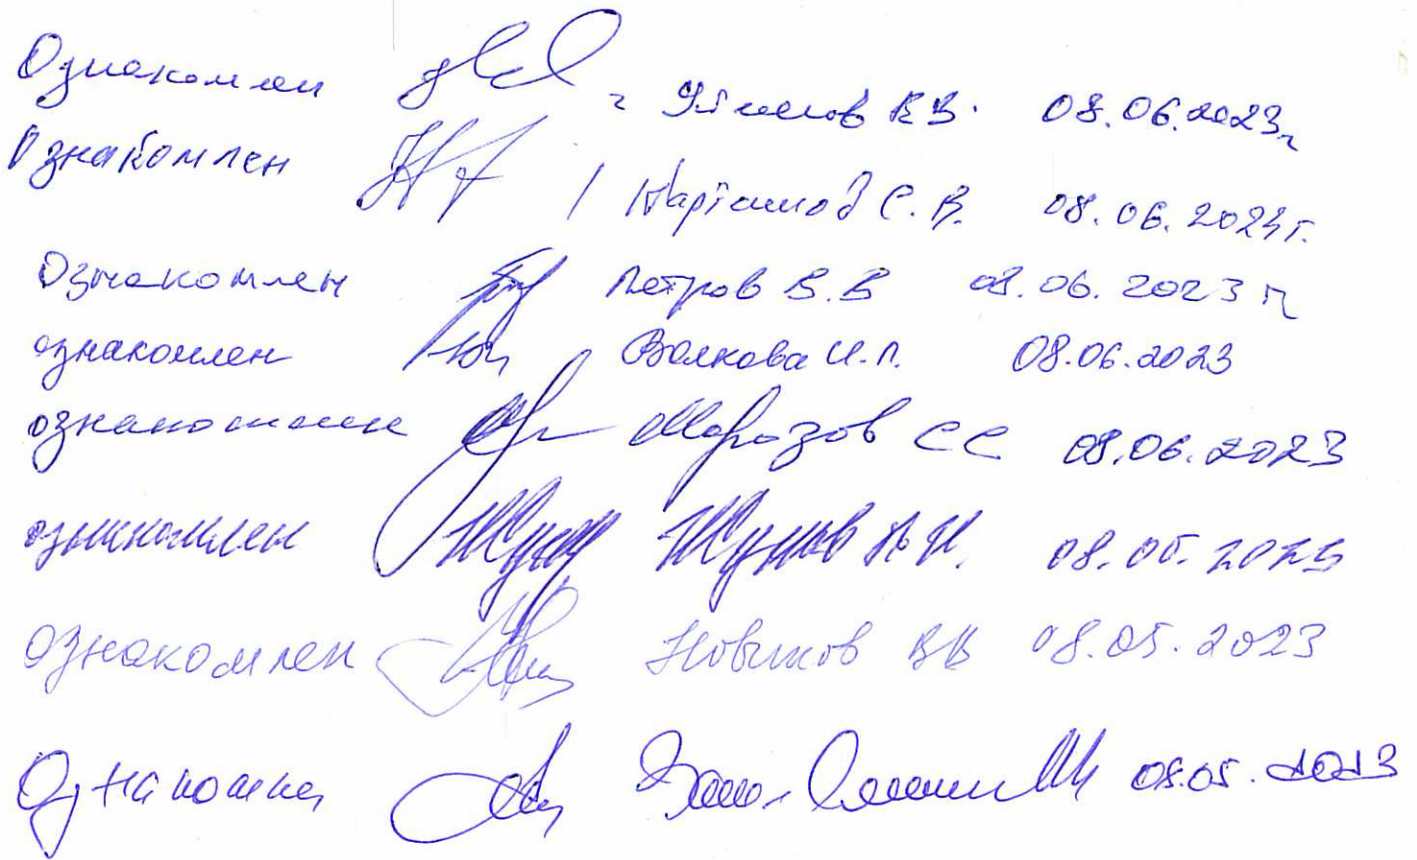 Ознакомлен В.В. 08.06.2023г
Ознакомлен / С.В. 08.06.2023г.
Ознакомлен Петров В.В 08.06.2023 г
ознакомлен Волкова И.П. 08.06.2023
ознакомлен Морозов СС 08.06.2023
ознакомлен Жуков 08.05.2023
ознакомлен Новиков ВВ 08.05.2023
Ознакомлен 08.05.2023